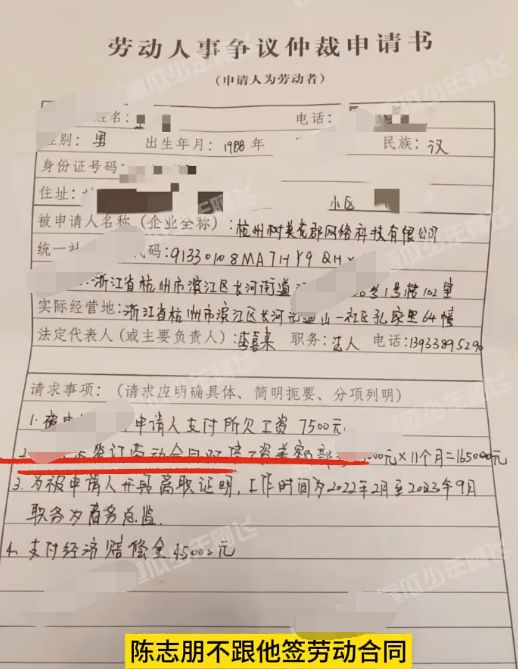 劳动人事争议仲裁申请书
（申请人为劳动者）
姓名： 电话：
性别：男 出生年月：1988年 民族：汉
身份证号码：
住址： 小区
被申请人名称（企业全称）：杭州树英龙郡网络科技有限公司
统一社 代码：91330108MA7H
浙江省杭州市滨江区长河街道 号1号楼102室
实际经营地：浙江省杭州市滨江区长河街道山一社区孔家里64幢
法定代表人（或主要负责人）： 职务：法人 电话：139338952
请求事项：（请求应明确具体、简明扼要、分项列明）
1. 被申 申请人支付所欠工资 7500元
2. 签订劳动合同双倍工资差额部 000元×11个月=165000元
3. 为被申请人开具离职证明，工作时间为2022年2月至2023年9月
职务为商务总监。
4. 支付经济赔偿金45000元
陈志朋不跟他签劳动合同